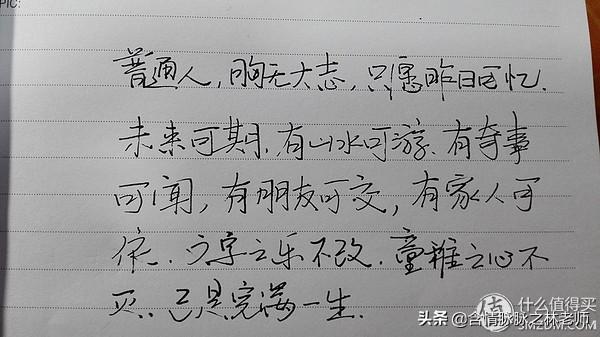 PIC:
普通人,胸无大志,只愿昨日可忆.
未来可期.有山水可游.有奇事
可闻,有朋友可交,有家人可
依.文字之乐不改.童稚之心不
灭.已是完满一生.
值 什么值得买
SMZDM.COM
头条@含情脉脉之林老师